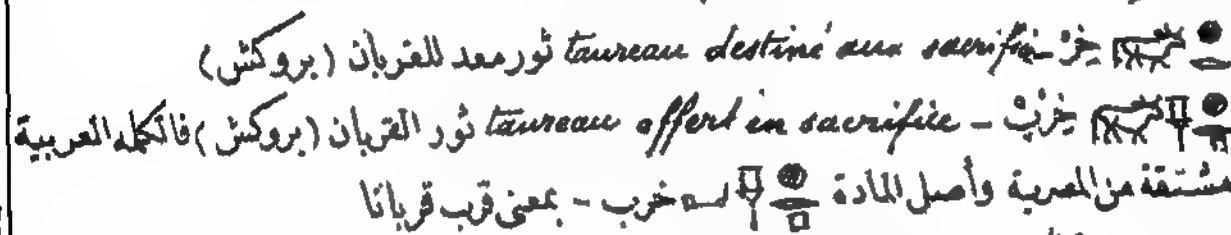 خِرْ - taureau destiné aux sacrifice ثور معد للقربان (بروكش)
خِرْبْ - taureau offert en sacrifice ثور القربان (بروكش) فالكلمه العربية
مشتقة من المصرية وأصل المادة خرب - بمعنى قرب قربانا